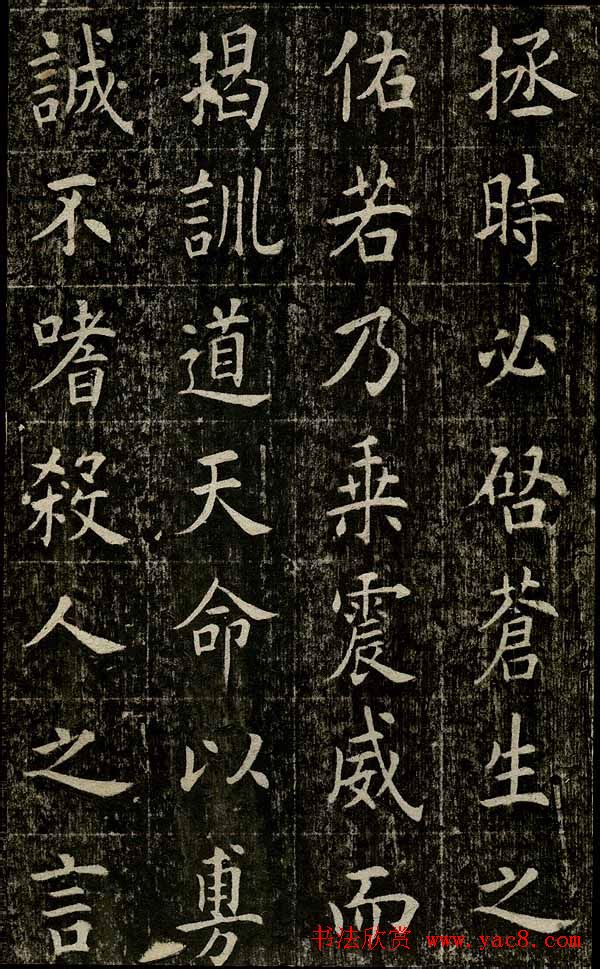 拯時必啓蒼生之
佑若乃乗震威而
揭訓道天命以旉
誠不嗜殺人之言
书法欣赏 www.yac8.com